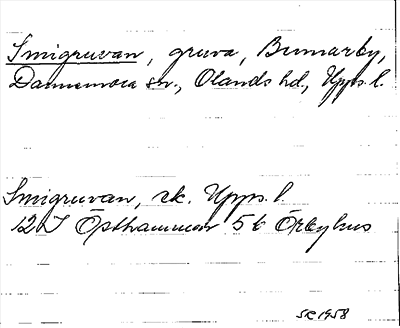 Smigruvan, gruva, Bumarby,
Dannemora sn., Olands hd., Upps. l.
Smigruvan, rk. Upps. l.
12 I Östhammar 5b Örbyhus
SR 1958